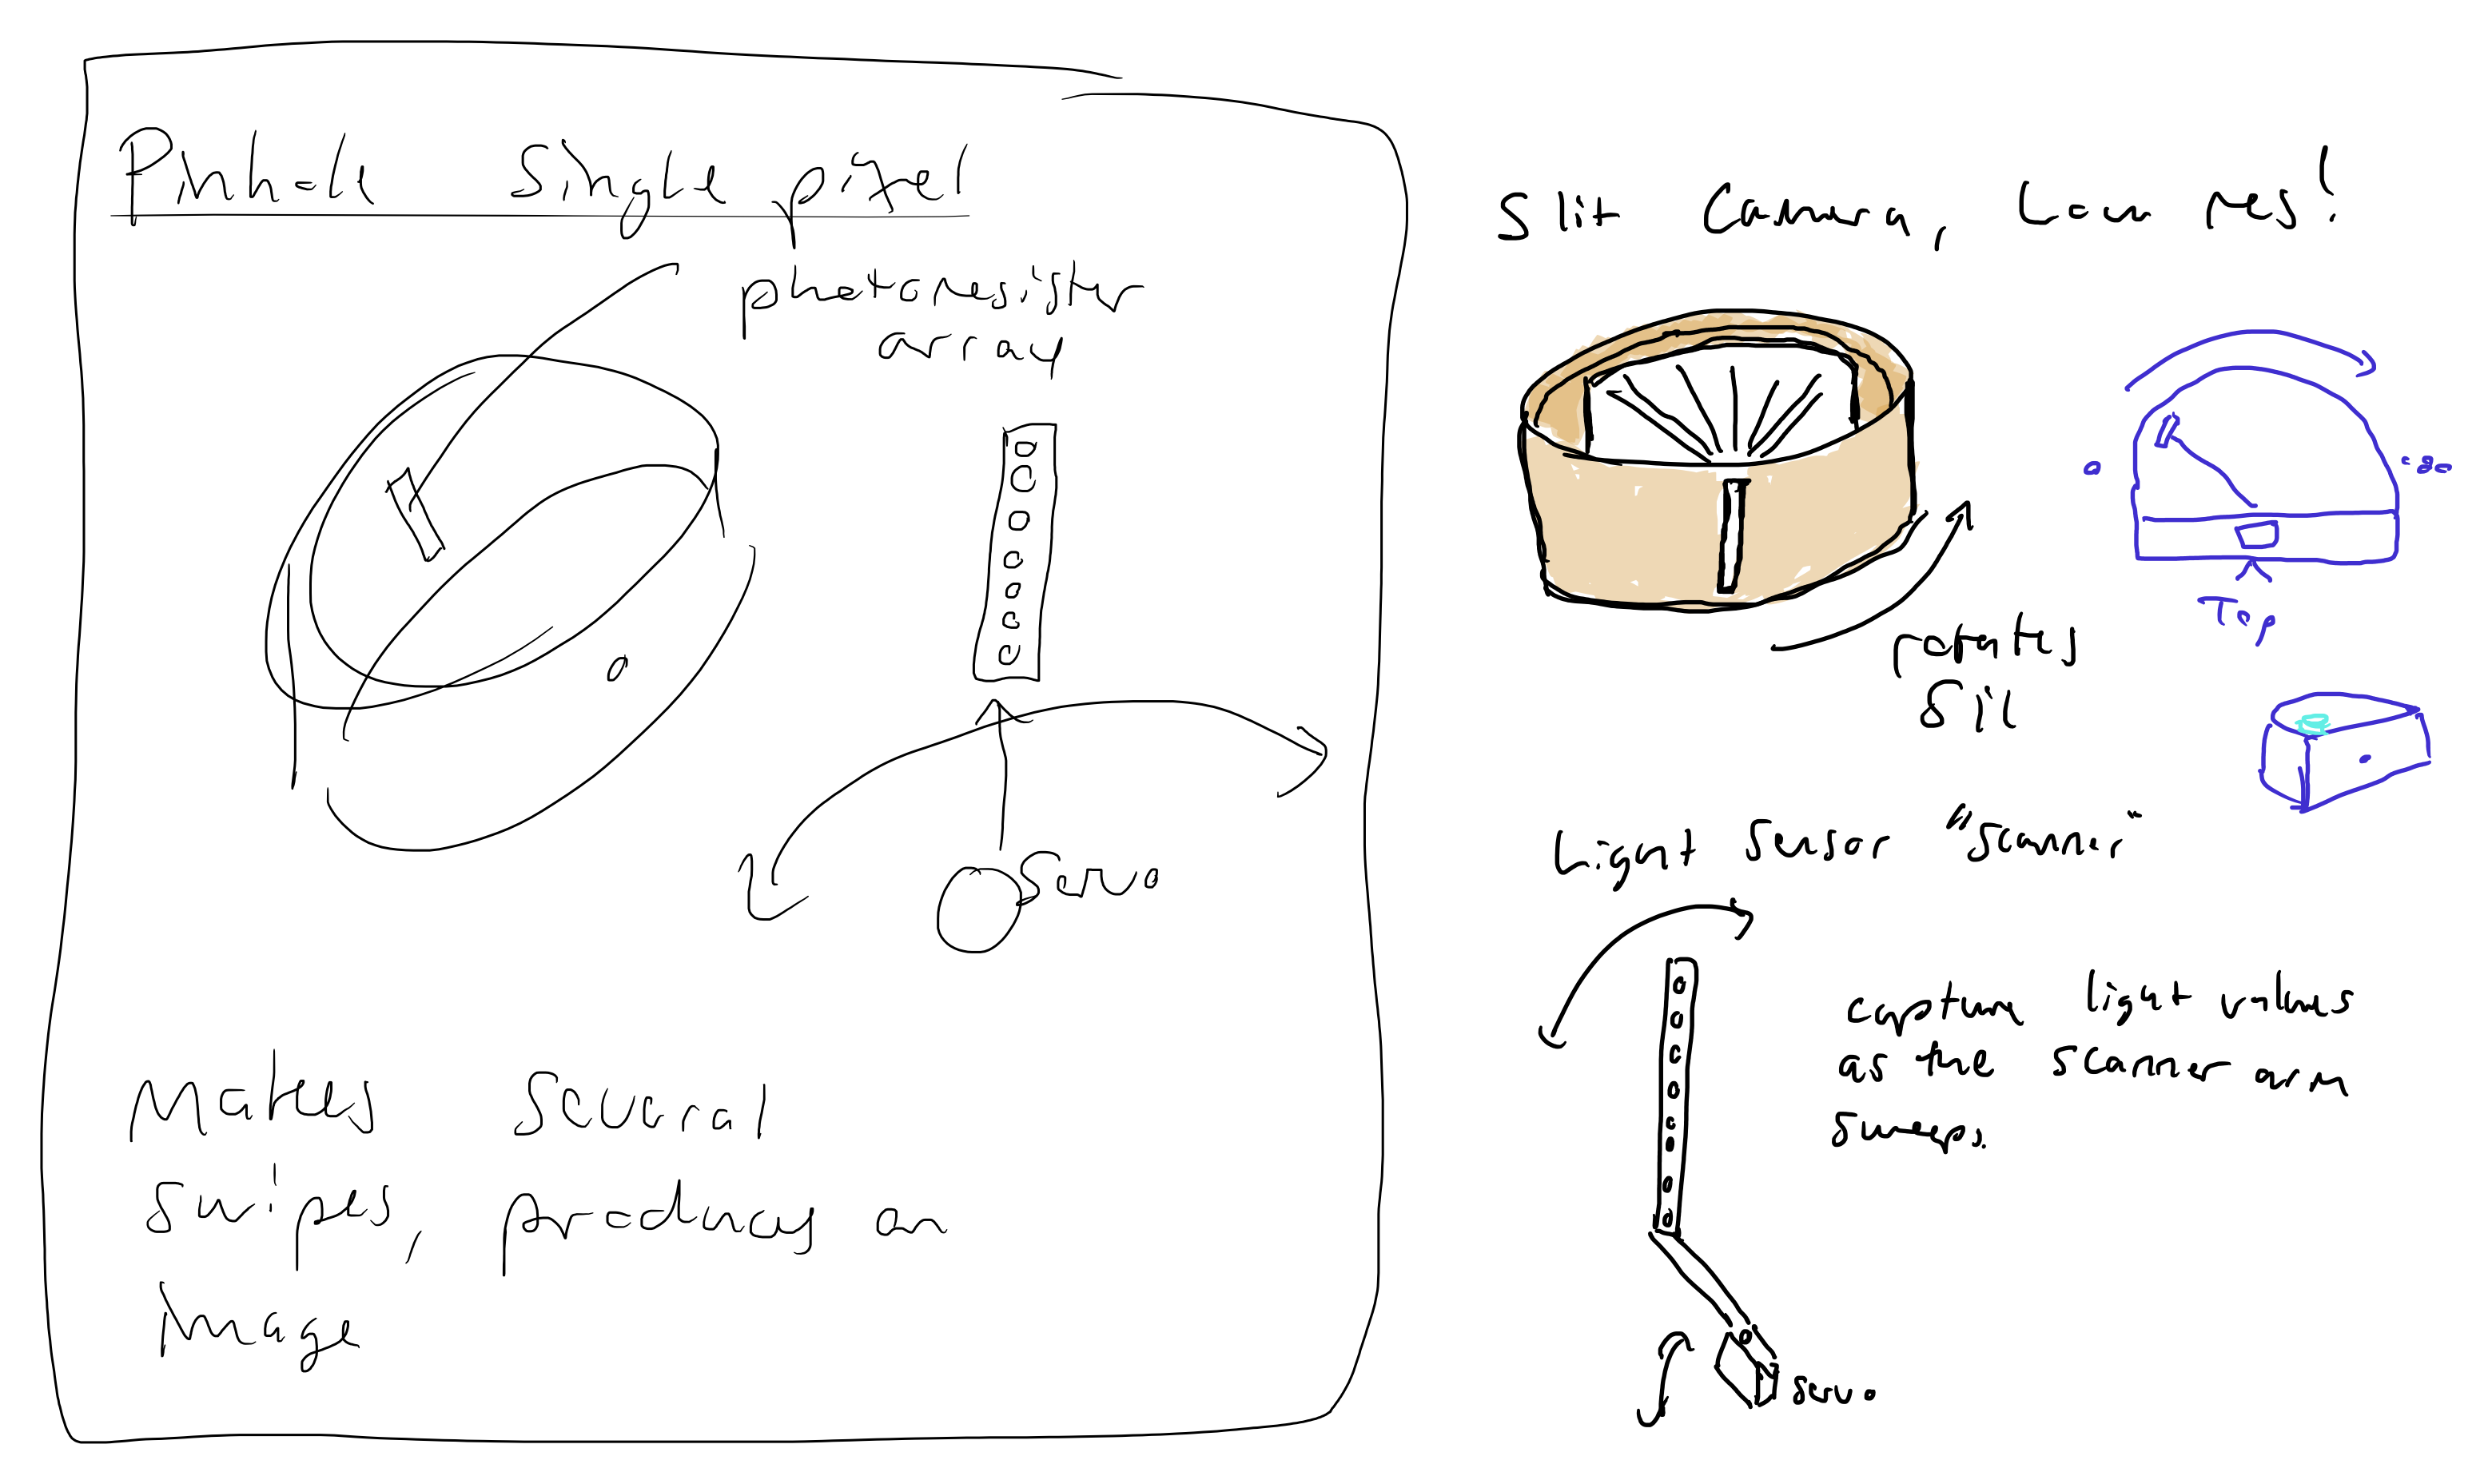 Pinhole Single pixel
photoresistor
array
Servo
Makes Several
Swipes, produces an
image
Slit Camera, Low res!
rotates
Slit
0
180
Top
Light Sensor "Scanner"
capture light values
as the scanner arm
sweeps.
servo